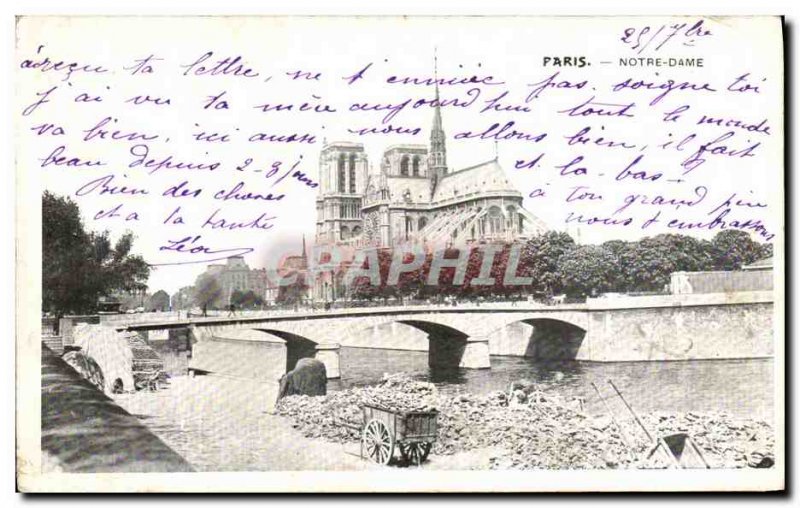 25/7bre
PARIS. — NOTRE-DAME
ai reçu ta lettre, ne t'ennuie pas, soigne toi
j'ai vu ta mère aujourd'hui tout le monde
va bien, ici aussi nous allons bien, il fait
beau depuis 2-3 jours et là-bas-
Bien des choses à ton grand père
et à ta tante nous t'embrassons
Léon
CPARHPHIL